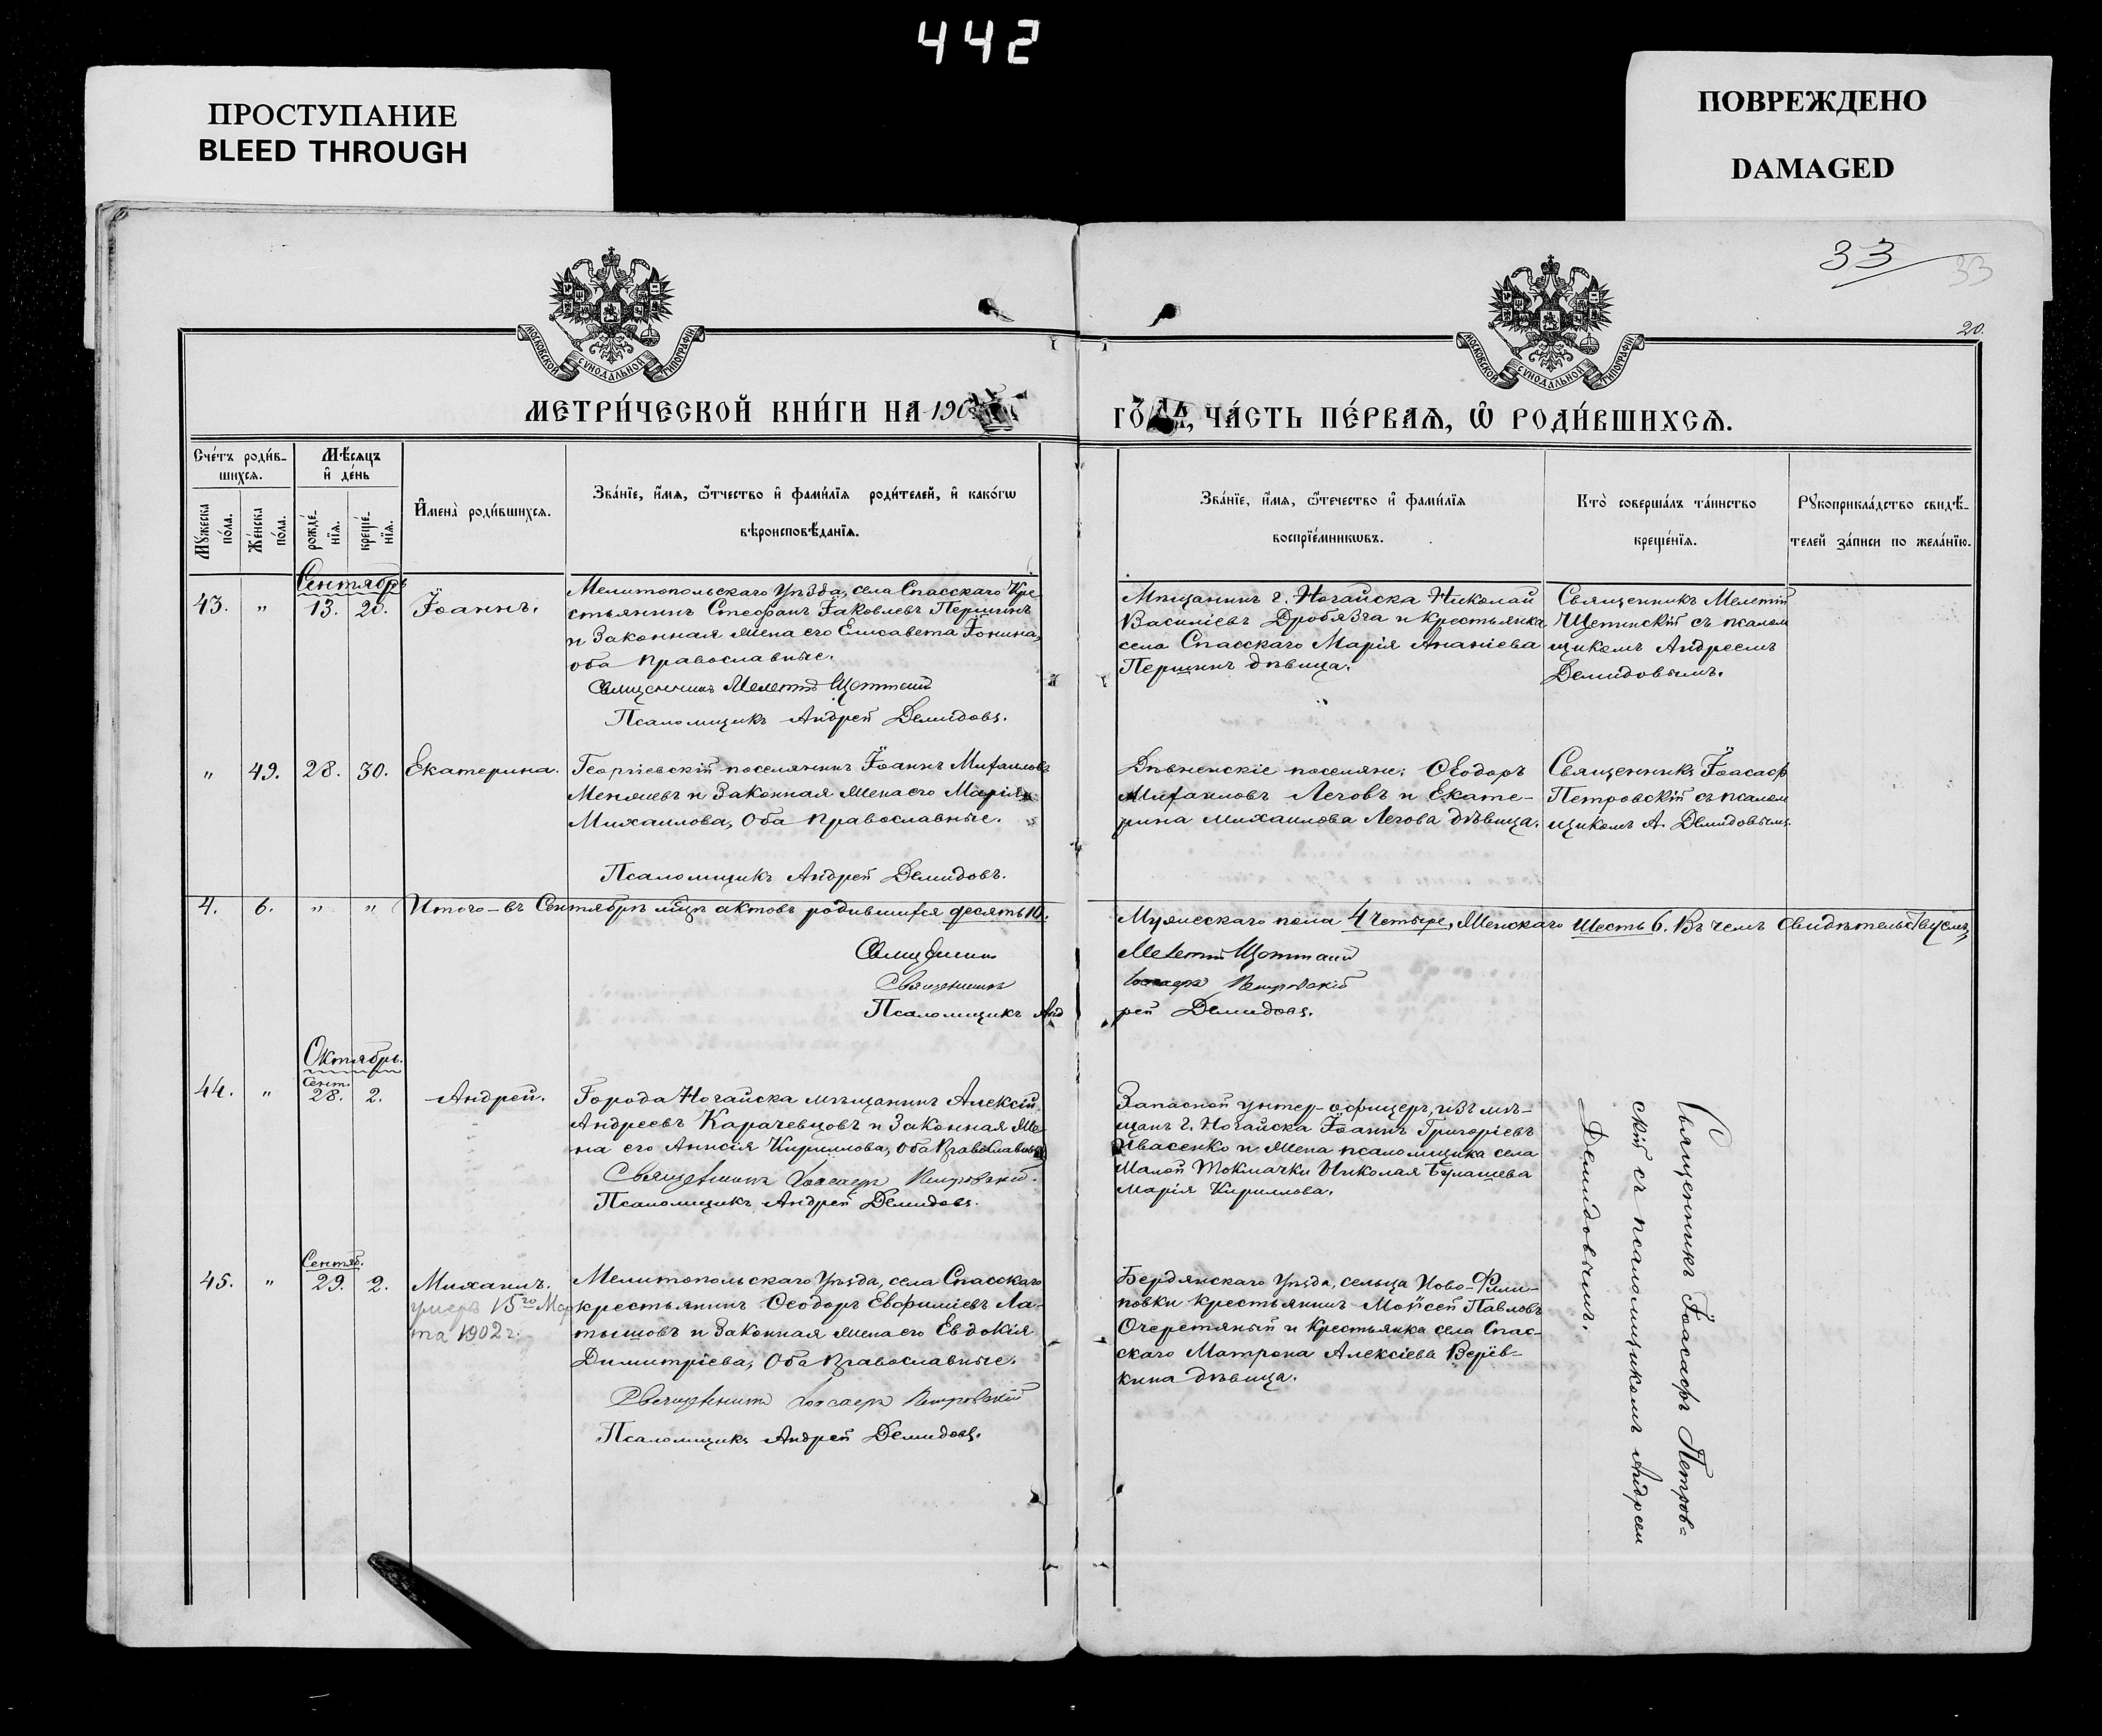 442
ПРОСТУПАНИЕ
BLEED THROUGH
ПОВРЕЖДЕНО
DAMAGED
33
33
20.
МОСКОВСКОЙ СѴНОДАЛЬНОЙ ТИПОГРАФІИ
МОСКОВСКОЙ СѴНОДАЛЬНОЙ ТИПОГРАФІИ
МЕТРИ́ЧЕСКОЙ КНИ́ГИ НА 190
ГО́ДА, ЧА́СТЬ ПЕ́РВАЯ, Ѡ РОДИ́ВШИХСЯ.
Сче́тъ роди́в-
шихся.
Мѣ́сяцъ
и҆ де́нь
Мꙋ́жеска
по́ла.
Же́нска
по́ла.
рожде́-
нїя.
креще́-
нїя.
И҆мена̀ роди́вшихся.
Зва́нїе, и҆́мя, ѻ҆́тчество и҆ фами́лїя роди́телей, и҆ како́гѡ
вѣроисповѣ́данїя.
Зва́нїе, и҆́мя, ѻ҆́течество и҆ фами́лїя
воспрїе́мникѡвъ.
Кто̀ соверша́лъ та́инство
креще́нїя.
Рꙋкоприкла́дство свидѣ́-
телей за́писи по жела́нїю.
Сентябрь
43. " 13. 20. Іоаннъ.
Мелитопольскаго Уѣзда, села Спасскаго Кре
стьянинъ Стефанъ Іаковлевъ Першинъ
и Законная жена его Елисавета Іонина,
оба православные.
Священникъ Мелетій Щетинскій
Псаломщикъ Андрей Демидовъ.
Мѣщанинъ г. Ногайска Николай
Василіевъ Дробязга и крестьянка
села Спасскаго Марія Ананіева
Першинъ дѣвица.
Священникъ Мелетій
Щетинскій съ псалом
щикомъ Андреемъ
Демидовымъ.
" 49. 28. 30. Екатерина.
Георгіевскій поселянинъ Іоаннъ Михаиловъ
и Законная жена его Марія
Михаилова, Оба православные.
Псаломщикъ Андрей Демидовъ.
поселяне: Ѳеодоръ
Михаиловъ Леговъ и Екате-
рина Михаилова Легова дѣвица.
Священникъ Іоасафъ
Петровскій съ псалом
щикомъ А. Демидовымъ.
4. 6. " " Итого - въ Сентябрѣ мѣцѣ актовъ родившихся десять 10.
Мужескаго пола 4 Четыре, Женскаго Шесть 6. Въ чемъ Свидѣтельствуемъ,
Священникъ Мелетій Щетинскій
Священникъ Іоасафъ Петровскій
Псаломщикъ Андрей Демидовъ.
Октябрь.
Сент.
44. " 28. 2. Андрей.
Города Ногайска мѣщанинъ Алексій
Андреевъ Карачевцовъ и Законная Же
на его Анисія Кириллова, оба Православные
Священникъ Іоасафъ Петровскій.
Псаломщикъ Андрей Демидовъ.
Запасной унтер-офицеръ, изъ мѣ-
щанъ г. Ногайска Іоаннъ Григоріевъ
Ивасенко и Жена псаломщика села
Малой Токмачки Николая Булашева
Марія Кириллова.
Священникъ Іоасафъ Петров-
скій съ псаломщикомъ Андреем
Демидовымъ.
Сентяб.
45. " 29. 2. Михаилъ.
умеръ 15го Мар
та 1902 г.
Мелитопольскаго Уѣзда, села Спасскаго
крестьянинъ Ѳеодоръ Евфиміевъ Ла-
тышовъ и Законная жена его Евдокія
Димитріева, Оба Православные.
Священникъ Іоасафъ Петровскій
Псаломщикъ Андрей Демидовъ.
Бердянскаго Уѣзда, сельца Ново-Фили-
повки крестьянинъ Моисей Павловъ
Очеретяный и Крестьянка села Спас-
скаго Матрона Алексіева Верёв-
кина дѣвица.